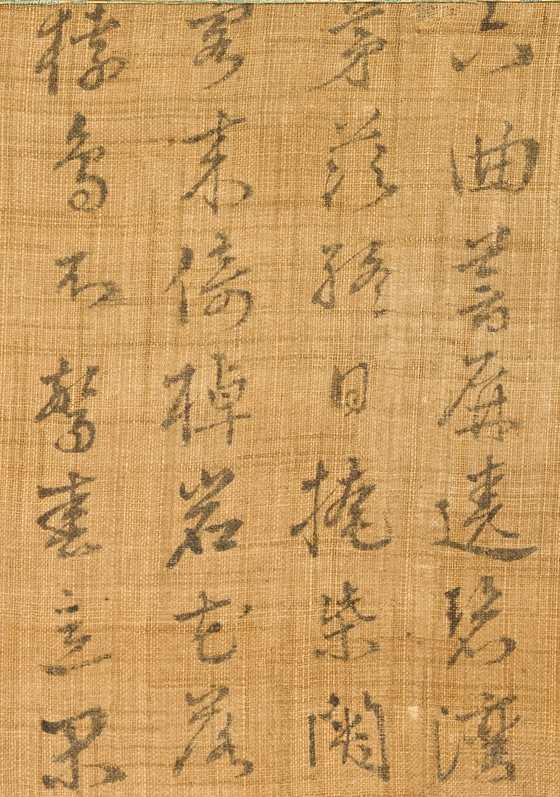 六曲蒼屏遶碧灣
茅茨終日掩柴關
客來倚棹岩花落
猿鳥不驚春意閑